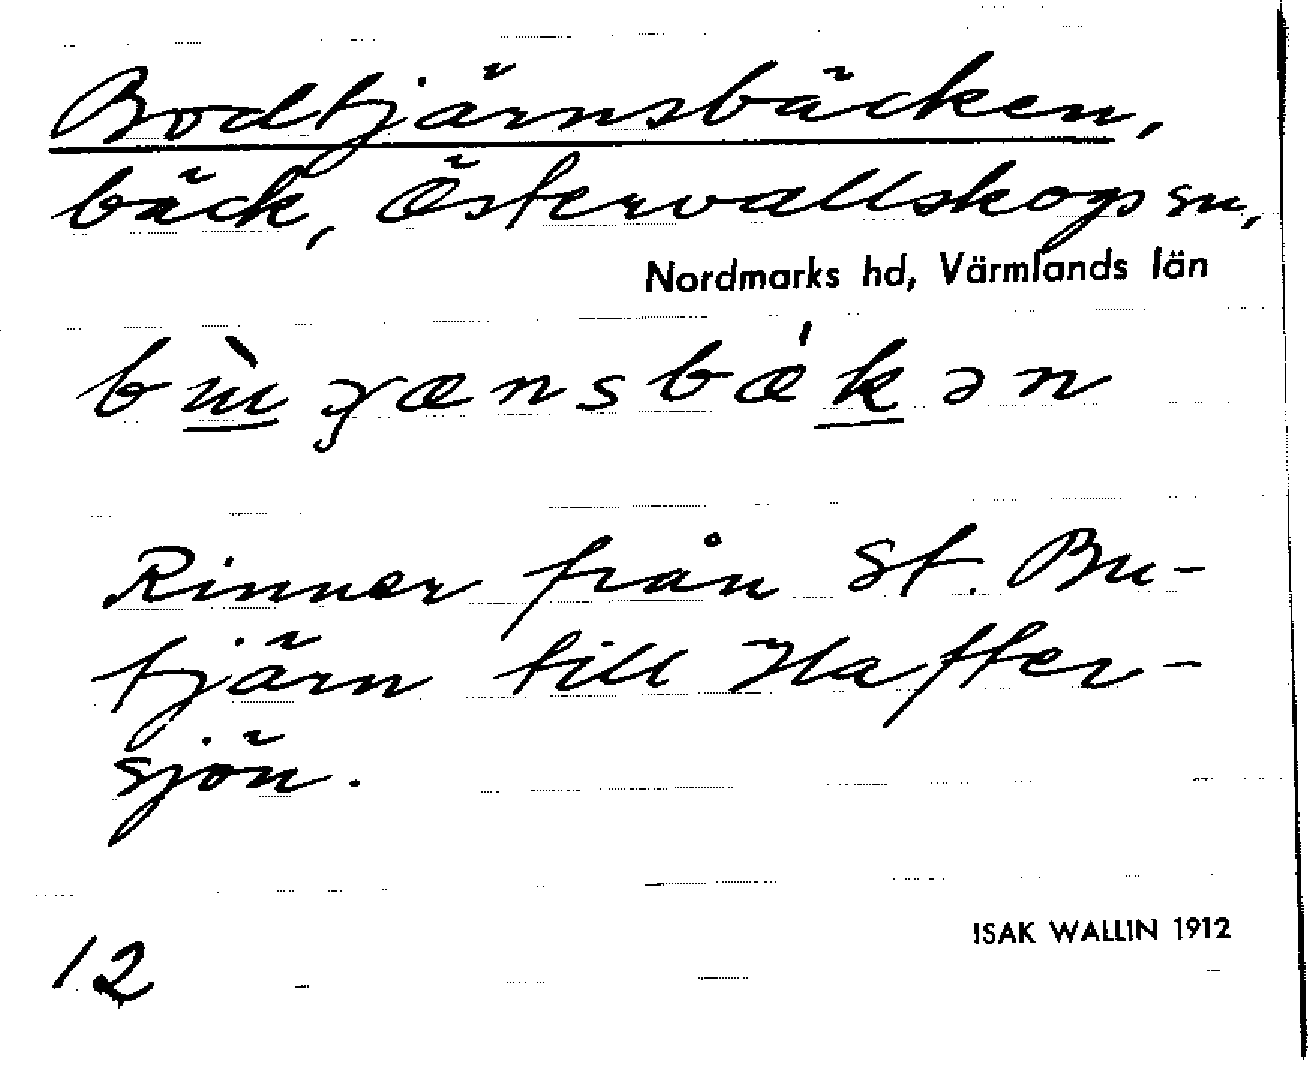 Bodtjärnsbäcken,
bäck, Östervallskogs sn,
Nordmarks hd, Värmlands län
Rinner från St. Bu-
tjärn till Hafter-
sjön.
ISAK WALLIN 1912
12